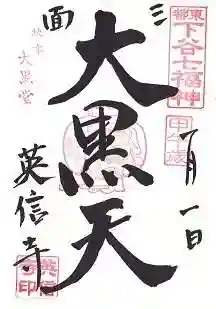 東都
下谷七福神
甲午歳
一月一日
三面
大黒天
大黒堂
英信寺
英信
寺印